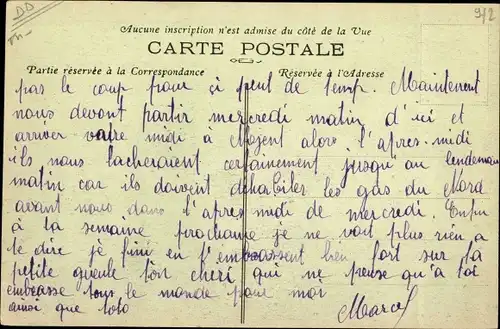 DD
9/2
Aucune inscription n'est admise du côté de la Vue
CARTE POSTALE
Partie réservée à la Correspondance
Réservée à l'Adresse
pas le coup pour si peut de temp. Maintenent
nous devont partir mercredi matin d'ici et
arriver vattre midi à Nojent alors l'apres-midi
ils nous lacheraient certainement jusqu'au lendemain
matin car ils doivent déhabiler les gas du Nord
avant nous dans l'apres midi de mercredi. Enfin
à la semaine prochaine je ne voit plus rien a
te dire je fini en t'embrassent bien fort sur la
petite gueule ton cheri qui ne pense qu'à toi
embrasse tous le monde pour moi
ainsi que toto
Marcel